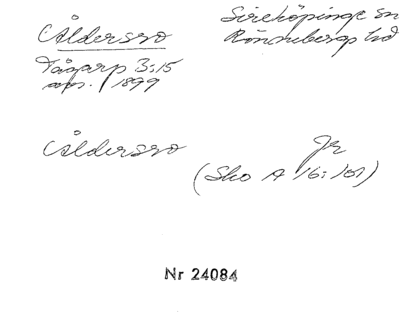 Åldersro
Sireköpinge sn
Rönnebergs hd
Tågarp 3:15
avs. 1899
Åldersro
Jr
(Sko A 16:101)
Nr 24084